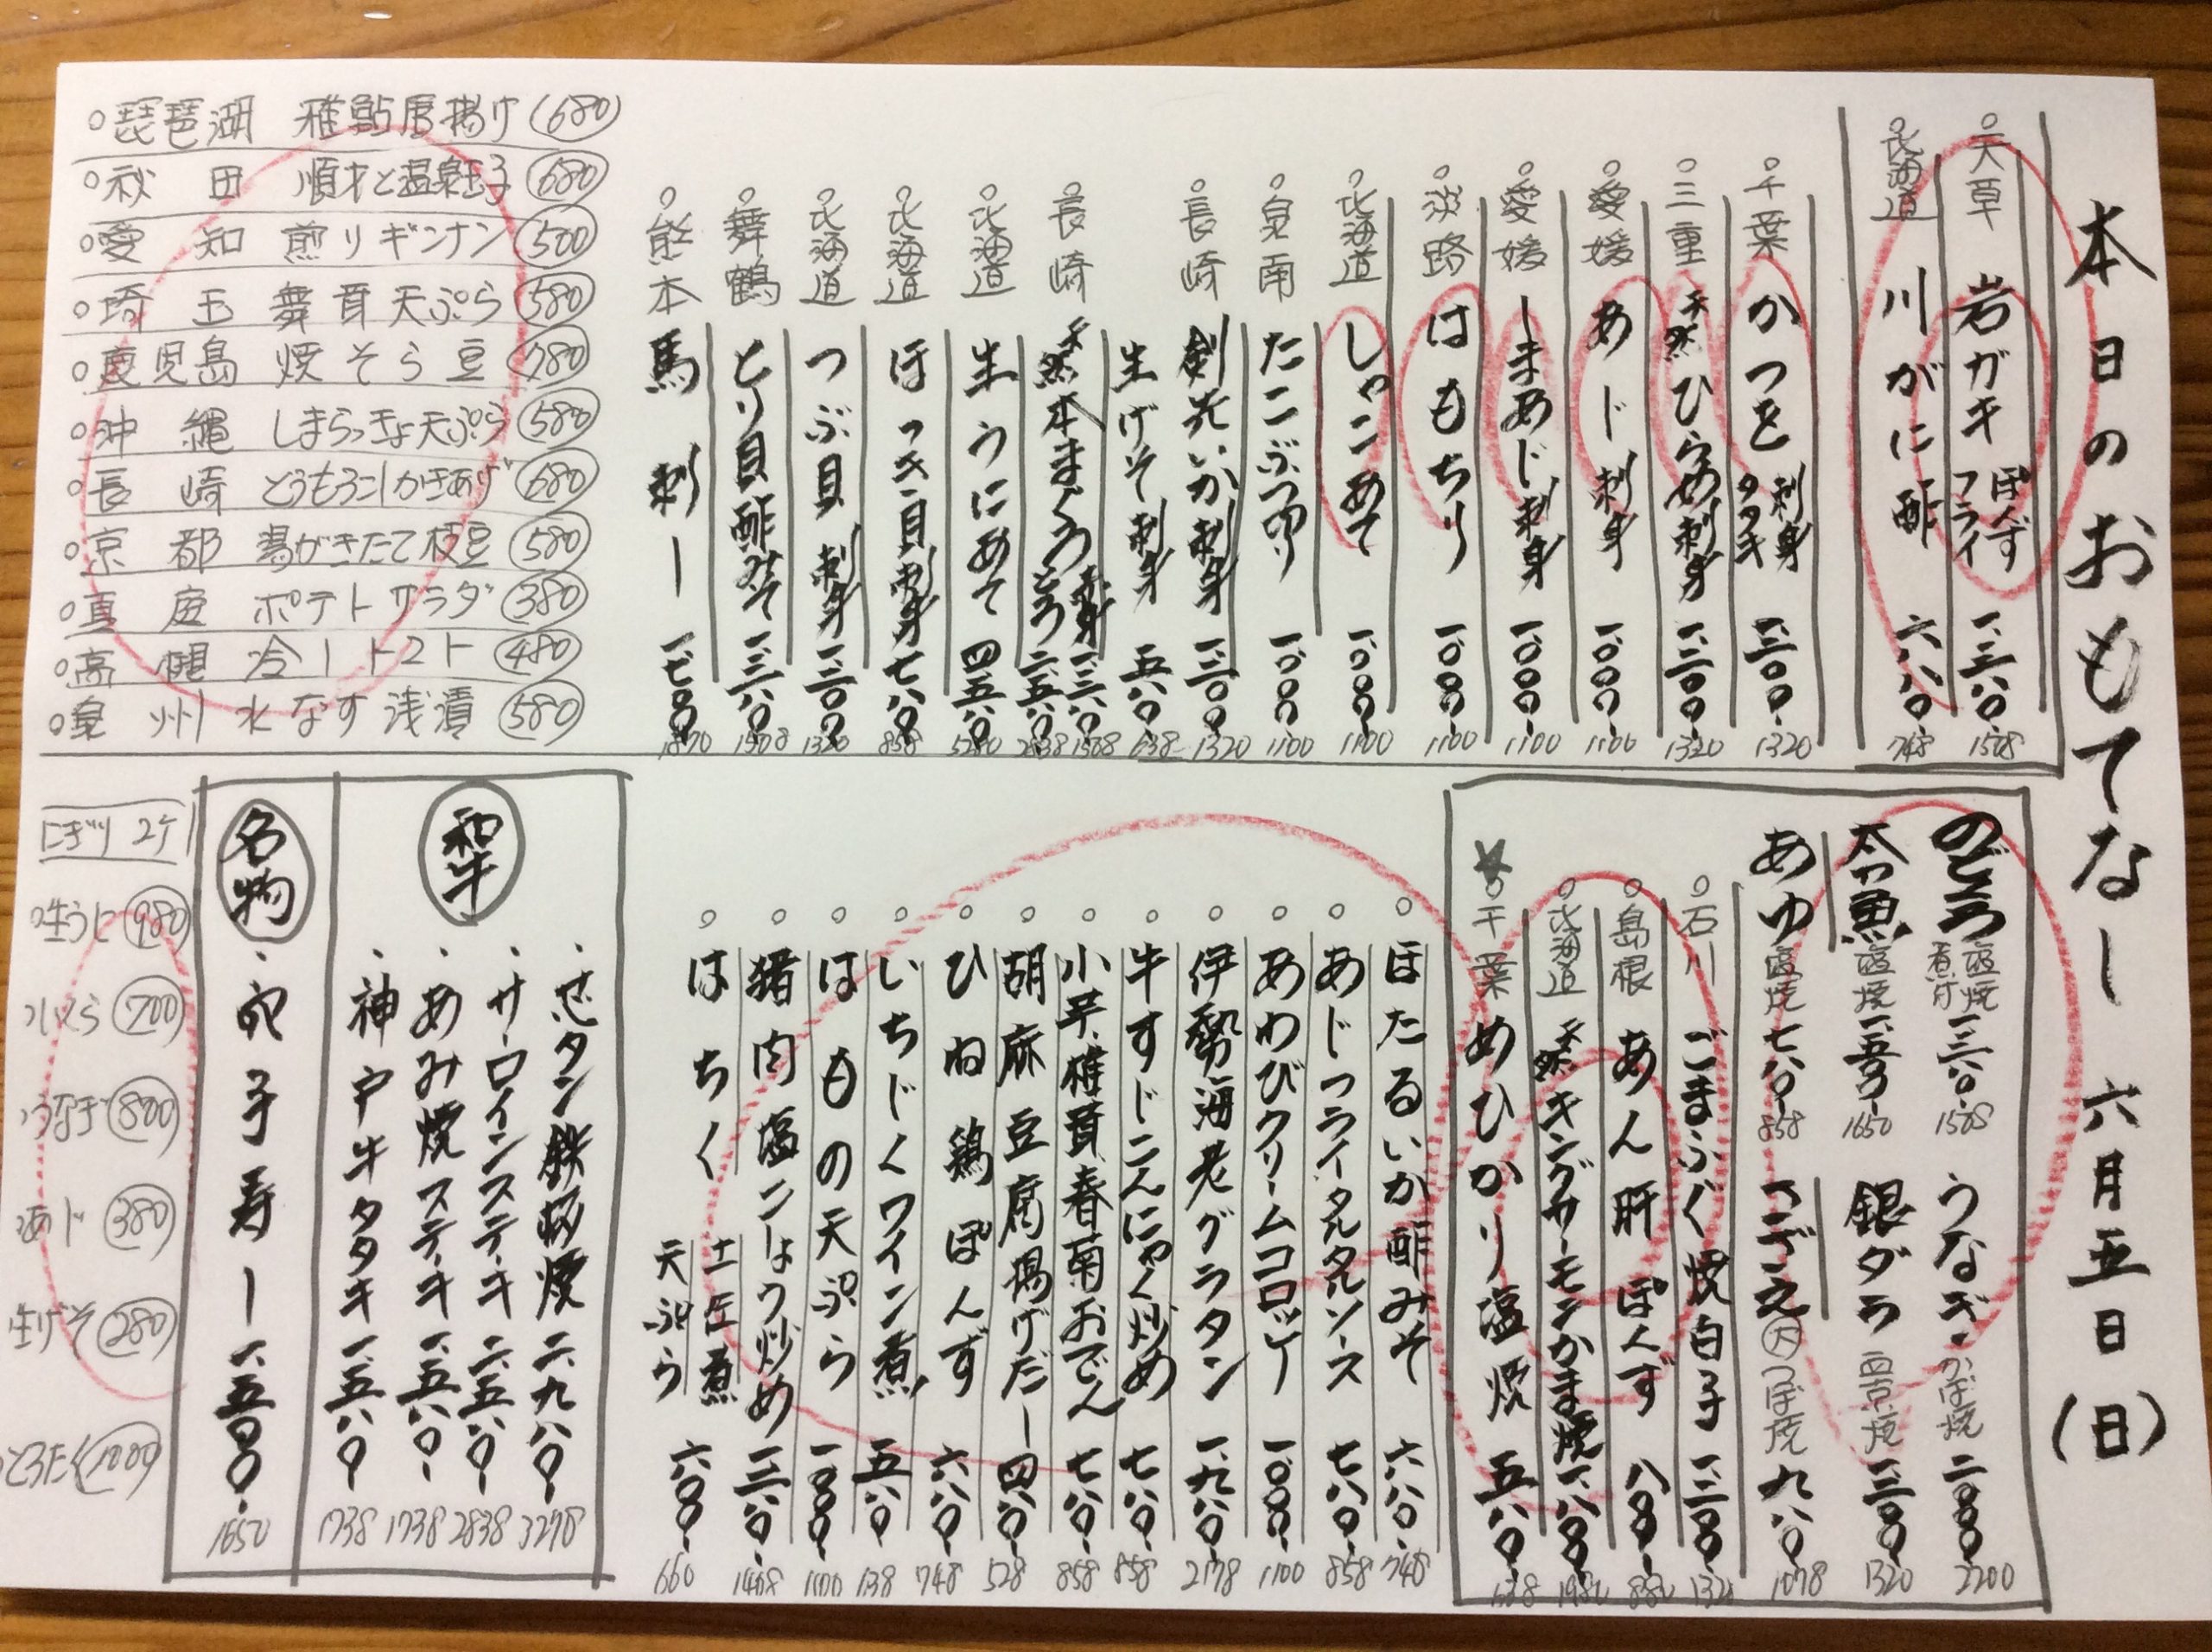 本日のおもてなし 六月五日(日)
天草 岩ガキ ぽんず フライ 一、三六〇 1508
北海道 川がに酢 六八〇 748
千葉 かつを 刺身 タタキ 一、二〇〇 1320
三重 天然 ひらめ刺身 一、二〇〇 1320
愛媛 あじ刺身 一、〇〇〇 1100
愛媛 しまあじ刺身 一、〇〇〇 1100
淡路 はもちり 一、〇〇〇 1100
北海道 しゃこあて 一、〇〇〇 1100
泉南 たこぶつ切り 一、〇〇〇 1100
長崎 剣先いか刺身 一、二〇〇 1320
生げそ刺身 五八〇 638
長崎 天然 本まぐろ 赤身 一、三六〇 1508
とろ 二、五八〇 2838
北海道 生うにあて 四、八〇〇 5280
北海道 ほっき貝刺身 七八〇 858
北海道 つぶ貝刺身 一、二〇〇 1320
舞鶴 とり貝酢みそ 一、三六〇 1508
熊本 馬刺し 一、七〇〇 1870
琵琶湖 稚鮎唐揚げ 680
秋田 順才と温泉玉子 680
愛知 煎りギンナン 500
埼玉 舞茸天ぷら 580
鹿児島 焼そら豆 780
沖縄 しまらっきょ天ぷら 580
長崎 とうもろこしかきあげ 680
京都 湯がきたて枝豆 580
真庭 ポテトサラダ 380
高槻 冷しトマト 480
泉州 水なす浅漬 580
のどぐろ 塩焼 煮付 一、三六〇 1508
うなぎ かば焼 二、〇〇〇 2200
太刀魚 塩焼 一、五〇〇 1650
銀ダラ 西京焼 一、二〇〇 1320
あゆ 塩焼 七八〇 858
さざえ 大 つぼ焼 九八〇 1078
石川 ごまふぐ焼白子 一、二〇〇 1320
島根 あん肝ぽんず 八〇〇 880
北海道 天然 キングサーモンかま焼 一、八〇〇 1980
千葉 めひかり塩焼 五八〇 638
ほたるいか酢みそ 六八〇 748
あじフライタルタルソース 七八〇 858
あわびクリームコロッケ 一、〇〇〇 1100
伊勢海老グラタン 一、九八〇 2178
牛すじこんにゃく炒め 七八〇 858
小芋、椎茸、春菊おでん 七八〇 858
胡麻豆腐揚げだし 四八〇 528
ひね鶏ぽんず 六八〇 748
いちじくワイン煮 五八〇
はもの天ぷら 一、〇〇〇 1100
猪肉塩こしょう炒め 一、二八〇 1408
はちく 土佐煮 天ぷら 六〇〇 660
和牛
・芯タン鉄板焼 二、九八〇 3278
・サーロインステーキ 二、五八〇 2838
・あみ焼ステーキ 一、五八〇 1738
・神戸牛タタキ 一、五八〇 1738
名物
・穴子寿し 一、五〇〇 1650
にぎり 2ケ
生うに 980
いくら 700
うなぎ 800
あじ 380
生げそ 280
とろたく 1000